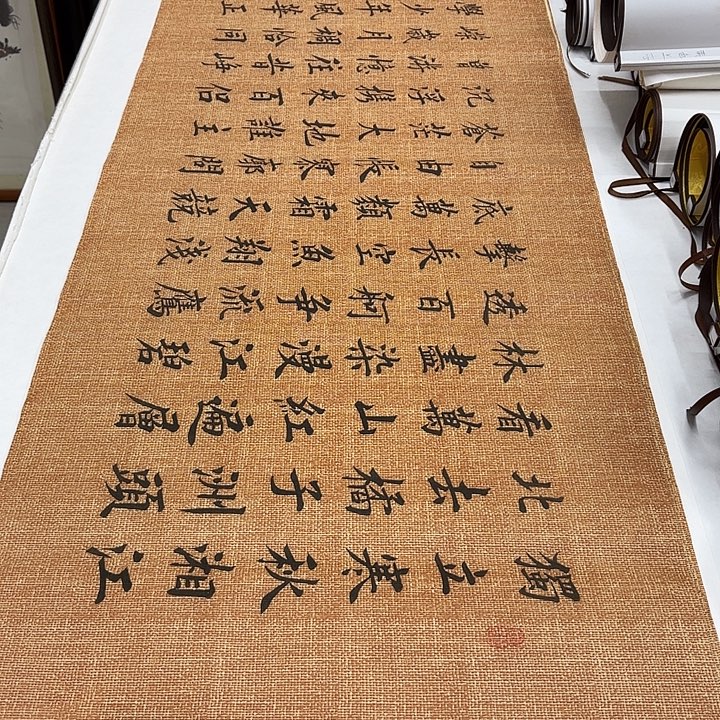 獨立寒秋湘江
北去橘子洲頭
看萬山紅遍層
林盡染漫江碧
透百舸爭流鷹
擊長空魚翔淺
底萬類霜天競
自由悵寥廓問
蒼茫大地誰主
沉浮携來百侶
曾游憶往昔崢
嶸歲月稠恰同
學少年風華正